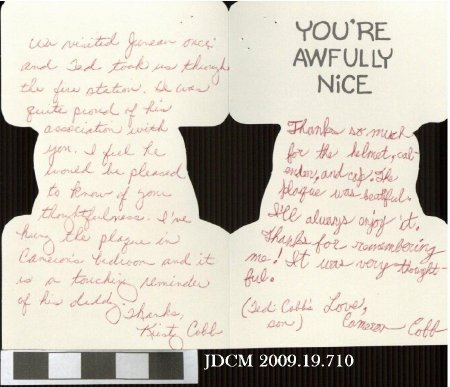 We visited Juneau once
and Ted took us through
the fire station. He was
quite proud of his
association with
you. I feel he
would be pleased
to know of your
thoughtfulness. I've
hung the plaque in
Cameron's bedroom and it
is a touching reminder
of his daddy.
Thanks,
Kristy Cobb
YOU'RE
AWFULLY
NiCE
Thanks so much
for the helmet, cal-
endar, and cap. The
plaque was beatiful.
I'll always enjoy it.
Thanks for remembering
me! It was very thought-
ful.
Love,
(Ted Cobb's
son)
Cameron Cobb
JDCM 2009.19.710